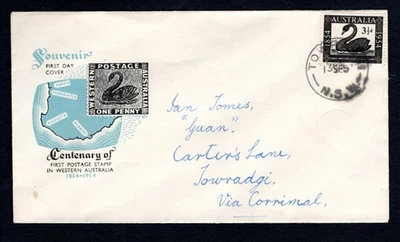 Souvenir
FIRST DAY
COVER
WESTERN POSTAGE AUSTRALIA
ONE PENNY
Centenary of
FIRST POSTAGE STAMP
IN WESTERN AUSTRALIA
1854-1954
1854 AUSTRALIA 1954
3½d
N.S.W
Ian Tomes,
"Guan."
Carter's Lane,
Towradgi,
Via Corrimal,